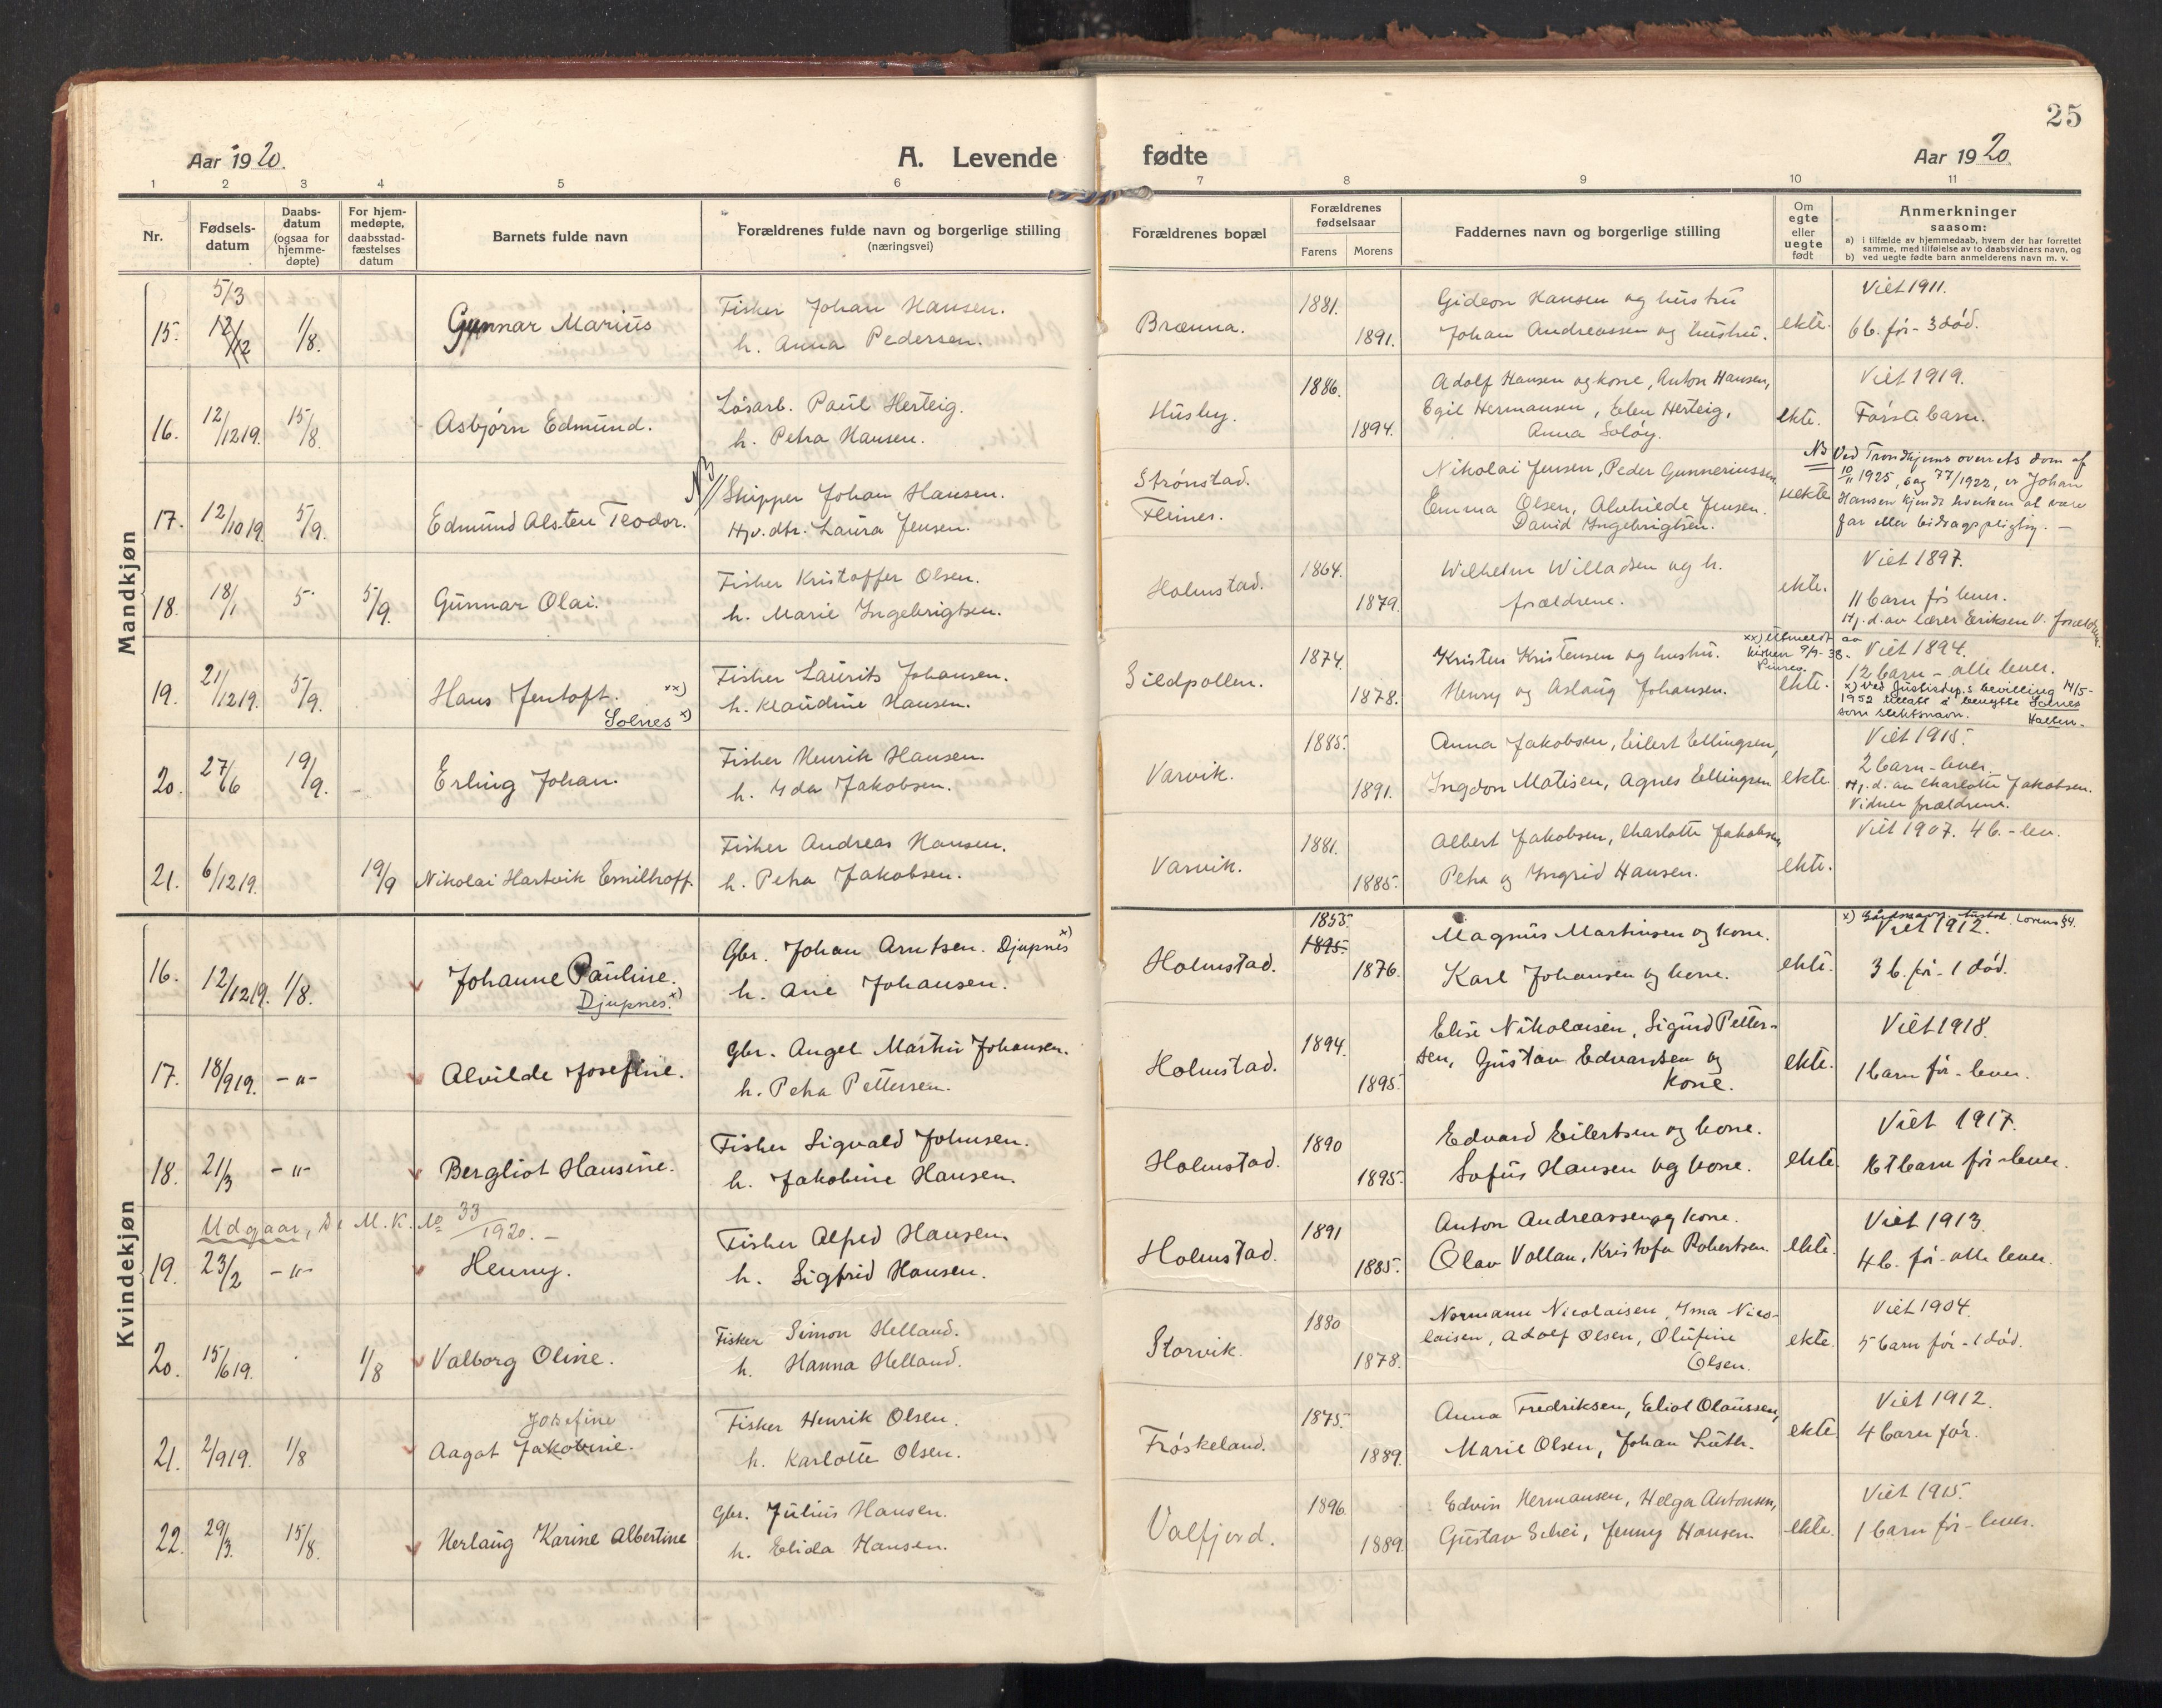 25
Aar 1920.
A. Levende
fødte
Aar 1920
1 2 3 4 5 6 7 8 9 10 11
Nr.
Fødsels-
datum
Daabs-
datum
(ogsaa for
hjemme-
døpte)
For hjem-
medøpte,
daabsstad-
fæstelses
datum
Barnets fulde navn
Forældrenes fulde navn og borgerlige stilling
(næringsvei)
Forældrenes bopæl
Forældrenes
fødselsaar
Farens Morens
Faddernes navn og borgerlige stilling
Om
egte
eller
uegte
født
Anmerkninger
saasom:
a) i tilfælde av hjemmedaab, hvem der har forrettet
samme, med tilføielse av to daabsvidners navn, og
b) ved uegte fødte barn anmelderens navn m. v.
Mandkjøn
15. 5/3 12/12 1/8. Gunnar Marius
Fisker Johan Hansen.
h. Anna Pedersen.
Brænna. 1881. 1891.
Gideon Hansen og hustru
Johan Andreassen og hustru.
ekte.
Viet 1911.
6 b. før - 3 død.
16. 12/12 19. 15/8. Asbjørn Edmund.
Løsarb. Paul Herteig.
h. Petra Hansen.
Husby. 1886. 1894.
Adolf Hansen og kone, Anton Hansen,
Egil Hermansen, Elen Herteig,
Anna Soløy.
ekte.
Viet 1919.
Første barn.
17. 12/10 19. 5/9. Edmund Alsten Teodor.
NB // Skipper Johan Hansen.
Hv. dtr. Laura Jensen.
Strønstad.
Fleines.
Nikolai Jensen, Peder Gunneriussen
Emma Olsen, Alvhilde Jensen.
David Ingebrigtsen.
uekte
NB Ved Trondhjems overrets dom af
10/11 1925, sag 77/1922, er Johan
Hansen kjendt hverken at være
far eller bidragspligtig. -
18. 18/1 5 5/9. Gunnar Olai.
Fisker Kristoffer Olsen.
h. Marie Ingebrigtsen.
Holmstad. 1864. 1879.
Wilhelm Willadsen og h.
forældrene.
ekte.
Viet 1897.
11 barn før lever.
Hj. d. av lærer Eriksen V. forældrene.
19. 21/12 19. 5/9. Hans Jentoft. xx)
Solnes x)
Fisker Laurits Johansen.
h. Klaudine Hansen.
Sildpollen. 1874. 1878.
Kristen Kristensen og hustru.
Henry og Aslaug Johansen.
ekte.
xx) Utmeldt av
kirken 9/9-38.
Viet 1894.
12 barn - alle lever.
x) Ved Justisdep.s bevilling 14/5-
1952 tillatt å benytte Solnes
som slektsnavn.
20. 27/6 19/9. - Erling Johan.
Fisker Henrik Hansen.
h. Ida Jakobsen.
Varvik. 1885. 1891.
Anna Jakobsen, Eilert Ellingsen,
Ingdon Matisen, Agnes Ellingsen
ekte.
Viet 1915.
2 barn - lever.
Hj. d. av Charlotte Jakobsen.
Vidner forældrene.
21. 6/12 19. 19/9 Nikolai Hartvik Emilhoff.
Fisker Andreas Hansen.
h. Petra Jakobsen.
Varvik. 1881. 1885.
Albert Jakobsen, Charlotte Jakobsen
Petra og Ingrid Hansen.
ekte.
Viet 1907. 4 b. - lev.
Kvindekjøn
16. 12/12 19. 1/8. Johanne Pauline.
Djupnes. x)
Gbr. Johan Arntsen. Djupnes x)
h. Ane Johansen.
Holmstad. 1855. 1895. 1876.
Magnus Martinsen og kone.
Karl Johansen og kone.
ekte.
Viet 1912.
3 b. før - 1 død.
17. 18/9 19. -"- Alvilde Josefine.
Gbr. Angel Martin Johansen.
h. Petra Pettersen.
Holmstad. 1894. 1895.
Elise Nikolaisen, Sigurd Petter-
sen, Gustav Edvardsen og
kone.
ekte.
Viet 1918.
1 barn før - lever.
18. 21/3 -"- Bergliot Hansine.
Fisker Sigvald Johnsen.
h. Jakobine Hansen.
Holmstad. 1890 1895.
Edvard Eilertsen og kone.
Sofus Hansen og kone.
ekte.
Viet 1917.
1 barn før - lever.
Udgaar, se M. K. No 33/1920. -
19. 23/2 -"- Henny.
Fisker Alfred Hansen.
h. Sigfrid Hansen.
Holmstad. 1891 1885.
Anton Andreassen og kone.
Olav Vollan, Kristofa Robertsen.
ekte.
Viet 1913.
4 b. før - alle lever.
20. 15/6 19. 1/8 Valborg Oline.
Fisker Simon Helland.
h. Hanna Helland.
Storvik. 1880 1878.
Normann Nicolaisen, Ima Nico-
laisen, Adolf Olsen, Olufine
Olsen.
ekte.
Viet 1904.
5 barn før - 1 død.
21. 2/9 19. 1/8 Josefine
Aagot Jakobine.
Fisker Henrik Olsen.
h. Karlotte Olsen.
Frøskeland. 1875. 1889.
Anna Fredriksen, Eliot Olaussen,
Marie Olsen, Johan Luth.
ekte.
Viet 1912.
4 barn før.
22. 29/3. 15/8. Herlaug Karine Albertine
Gbr. Julius Hansen.
h. Elida Hansen.
Valfjord. 1896. 1889.
Edvin Hermansen, Helga Antonsen,
Gustav Schei, Jenny Hansen
ekte.
Viet 1915.
1 barn før - lever.